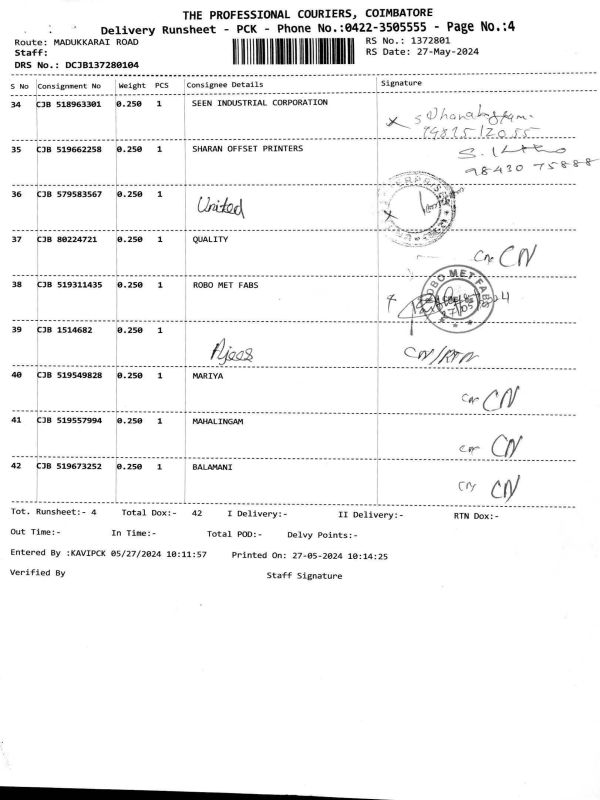 THE PROFESSIONAL COURIERS, COIMBATORE
Delivery Runsheet - PCK - Phone No.:0422-3505555 - Page No.:4
Route: MADUKKARAI ROAD RS No.: 1372801
Staff: RS Date: 27-May-2024
DRS No.: DCJB137280104
S No Consignment No Weight PCS Consignee Details Signature
34 CJB 518963301 0.250 1 SEEN INDUSTRIAL CORPORATION
35 CJB 519662258 0.250 1 SHARAN OFFSET PRINTERS
98430 75888
36 CJB 579583567 0.250 1 United
37 CJB 80224721 0.250 1 QUALITY CN
38 CJB 519311435 0.250 1 ROBO MET FABS
ROBO MET FABS
39 CJB 1514682 0.250 1 Ajees CN/RTN
40 CJB 519549828 0.250 1 MARIYA CN
41 CJB 519557994 0.250 1 MAHALINGAM CN
42 CJB 519673252 0.250 1 BALAMANI CN
Tot. Runsheet:- 4 Total Dox:- 42 I Delivery:- II Delivery:- RTN Dox:-
Out Time:- In Time:- Total POD:- Delvy Points:-
Entered By :KAVIPCK 05/27/2024 10:11:57 Printed On: 27-05-2024 10:14:25
Verified By Staff Signature